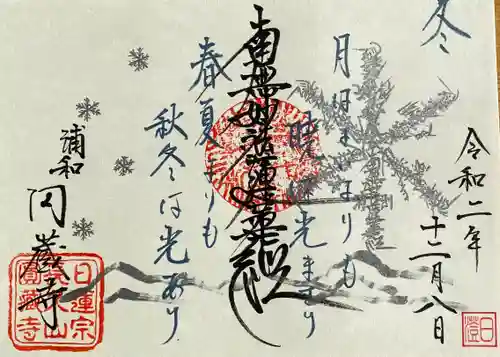 冬
令和二年
十二月八日
月はよいよりも
暁は光まさり
南無妙法蓮華経
春夏よりも
秋冬は光あり
浦和
円蔵寺
日蓮宗
圓蔵寺